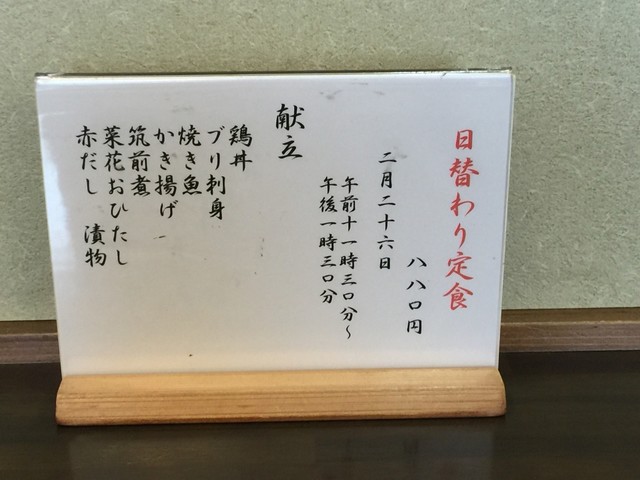 日替わり定食
八八〇円
二月二十六日
午前十一時三〇分～
午後一時三〇分
献立
鶏丼
ブリ刺身
焼き魚
かき揚げ
筑前煮
菜花おひたし
赤だし 漬物